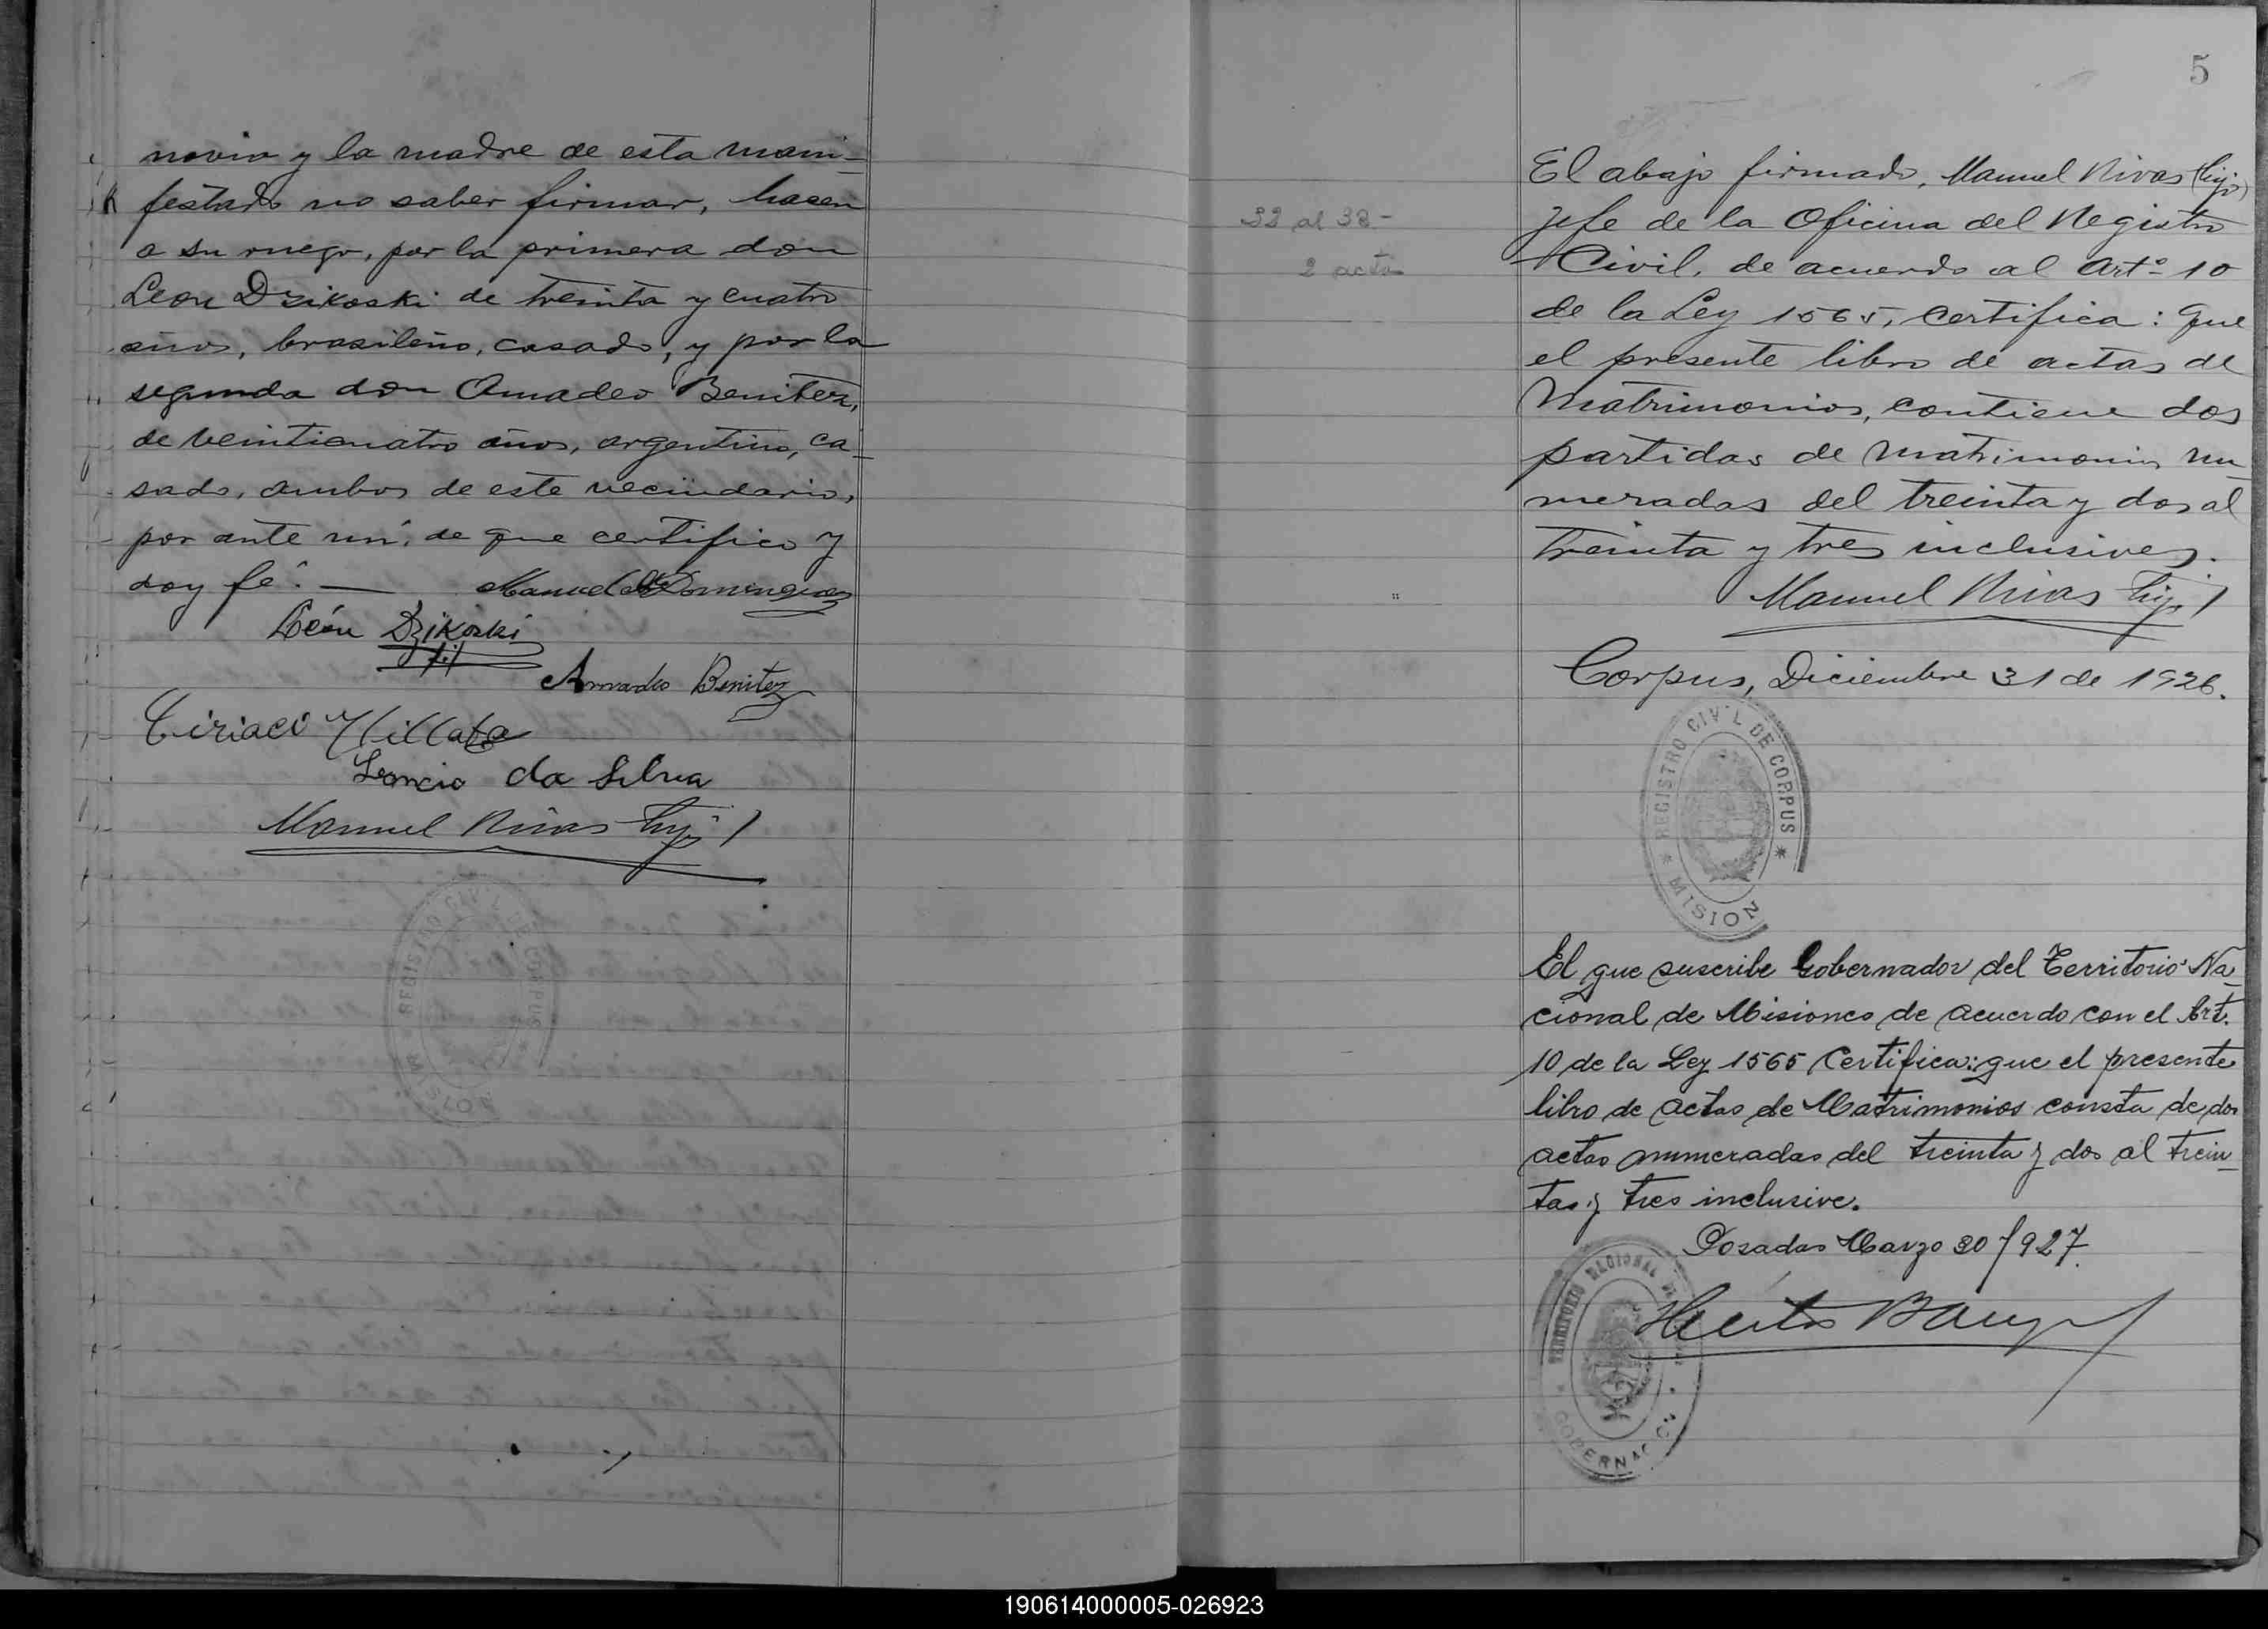 novia y la madre de esta mani-
festado no saber firmar, hacen
a su ruego, por la primera don
Leon Dzikoski de treinta y cuatro
años, brasileño, casado, y por la
segunda don Amadeo Benitez,
de veinticuatro años, argentino, ca-
sado, ambos de este vecindario,
por ante mí, de que certifico y
doy fé. — Manuel Dominguez
León Dzikoski
Amadeo Benitez
Ciriaco Villalba
da Silva
Manuel Rivas hijo
REGISTRO CIVIL DE CORPUS
5
32 al 33-
2 acta
El abajo firmado, Manuel Rivas (hijo)
Jefe de la Oficina del Registro
Civil, de acuerdo al Artº 10
de la Ley 1565, certifica: Que
el presente libro de actas de
Matrimonios, contiene dos
partidas de matrimonios nu-
meradas del treinta y dos al
treinta y tres inclusives.
Manuel Rivas hijo
Corpus, Diciembre 31 de 1926.
REGISTRO CIVIL DE CORPUS * MISION
El que suscribe Gobernador del Territorio Na-
cional de Misiones de acuerdo con el Art.
10 de la Ley 1565 Certifica: que el presente
libro de actas de Matrimonios consta de dos
actas numeradas del treinta y dos al trein-
tas y tres inclusive.
Posadas Marzo 30/927.
TERRITORIO NACIONAL
GOBERNACION
190614000005-026923